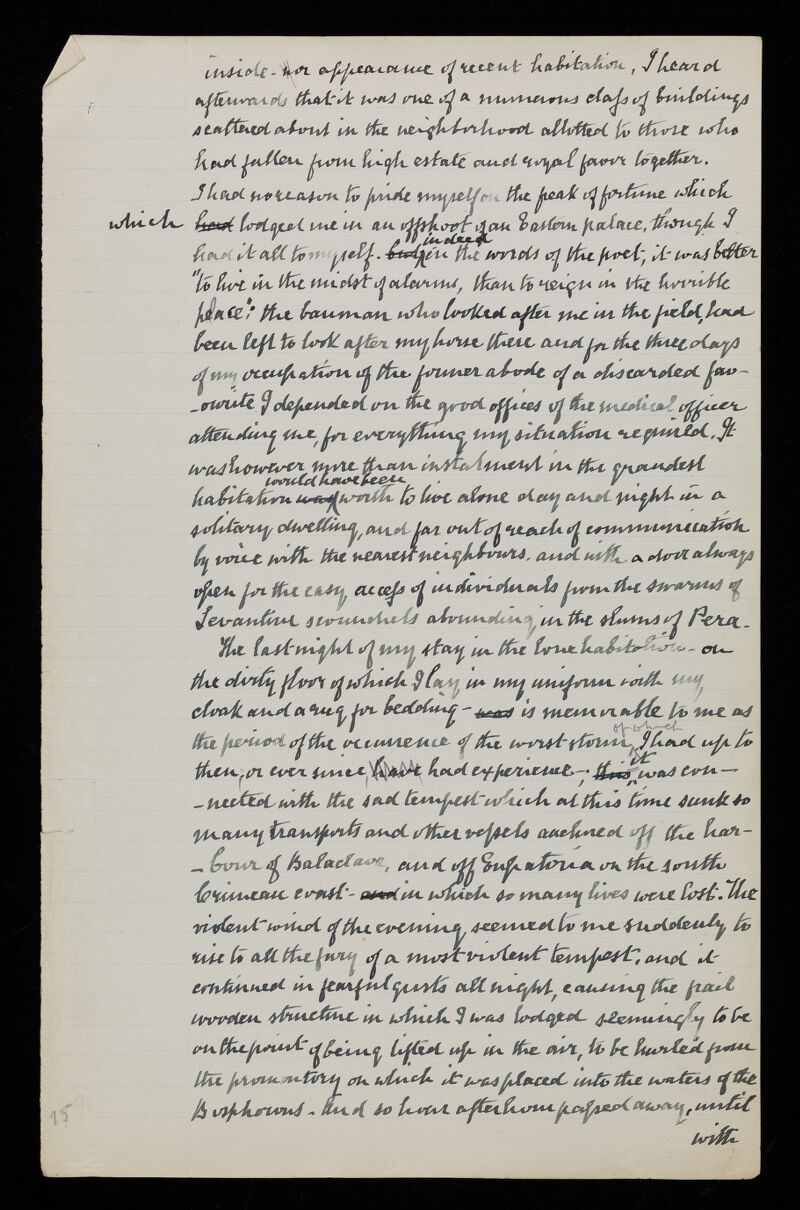 inside - nor appearance of recent habitation, I heard
afterwards that it was one of a numerous class of buildings
scattered about in the neighborhood allotted to those who
had fallen from high estate and royal favor together.
I had no reason to pride myself on the peak of fortune which
which had lodged me in an offshoot of an Eastern palace, though I
had it all to myself. but indeed in the words of the poet, it was better
"to live in the midst of alarms, than to reign in the horrible
place": the bauman who looked after me in the field, had
been left to look after my horse there and for the three days
of my occupation of the former abode of a discarded fav-
-ourite I depended on the good offices of the medical officer
attending me, for everything my situation required. It
was however more than instalment in the grandest
habitation was would have been worth to live alone day and night in a
solitary dwelling, and far out of reach of communication
by voice with the nearest neighbours. and with a door always
open for the easy access of individuals from the swarms of
Levantine scoundrels abounding in the slums of Pera.
The last night of my stay in the lone habitation - on
the dirty floor of which I lay in my uniform with my
cloak and a rug for bedding - was is memorable to me as
the period of the occurrence of the worst storm of which I had up to
then, or ever since have had experience -; this it was con-
-nected with the sad tempest which at this time sunk so
many transports and other vessels anchored off the har-
-bour of Balaclava, and off Eupatoria on the south
Crimean coast - and in which so many lives were lost. The
violent wind of the evening, seemed to me suddenly to
rise to all the fury of a most violent tempest, and it
continued in fearful gusts all night, causing the frail
wooden structure in which I was lodged seemingly to be
on the point of being lifted up in the air, to be hurled from
the promontory on which it was placed into the waters of the
Bosphorus - And so hour after hour passed away, until
with